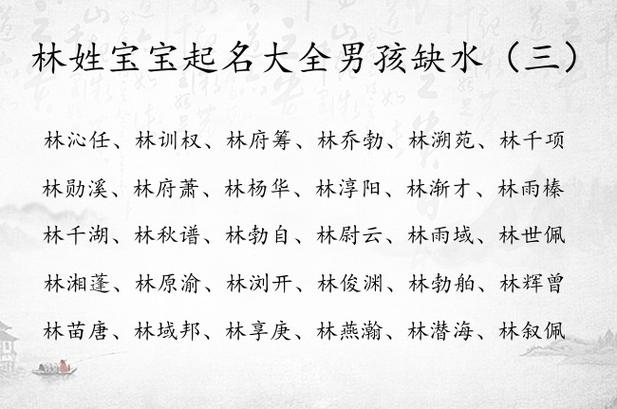 林姓宝宝起名大全男孩缺水（三）
林沁任、林训权、林府筹、林乔勃、林溯苑、林千项
林勋溪、林府萧、林杨华、林淳阳、林渐才、林雨榛
林千湖、林秋谱、林勃自、林尉云、林雨域、林世佩
林湘蓬、林原渝、林浏开、林俊渊、林勃舶、林辉曾
林苗唐、林域邦、林享庚、林燕瀚、林潜海、林叙佩